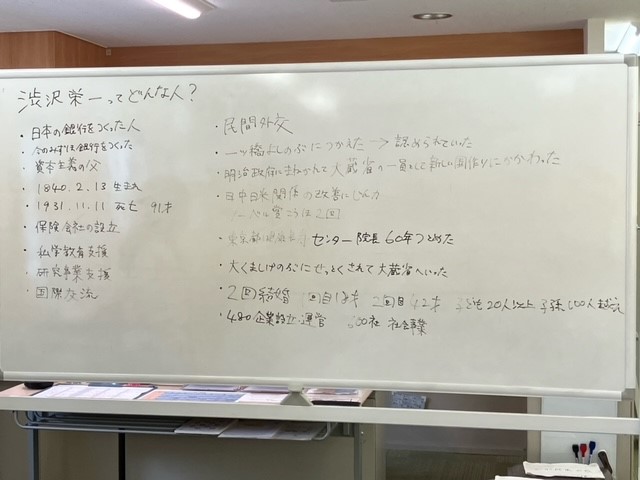 渋沢栄一ってどんな人?
・日本の銀行をつくった人
・今のみずほ銀行をつくった
・資本主義の父
・1840.2.13 生まれ
・1931.11.11 死亡 91才
・保険会社の設立
・私学教育支援
・研究事業支援
・国際交流
・民間外交
・一ツ橋よしのぶにつかえた→認められていた
・明治政府にまねかれて大蔵省の一員として新しい国作りにかかわった
・日中日米関係の改善にじんりょく
ノーベル賞こうほ2回
センター院長60年つとめた
・大くましげのぶにせっとくされて大蔵省へいった
・2回結婚 1回目18才 2回目42才 子ども20人以上
・480企業設立・運営 600社 社会事業